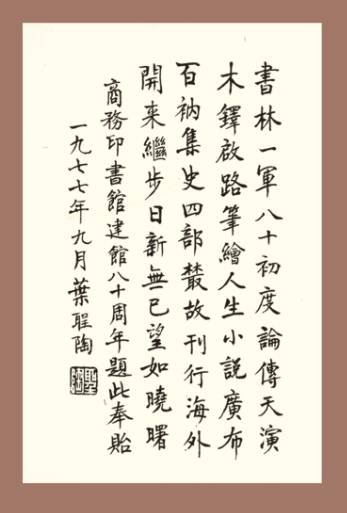 書林一軍八十初度論傳天演
木鐸啟路筆繪人生小説廣布
百衲集史四部叢故刊行海外
開来繼步日新無已望如曉曙
商務印書館建館八十周年題此奉貽
一九七七年九月葉聖陶